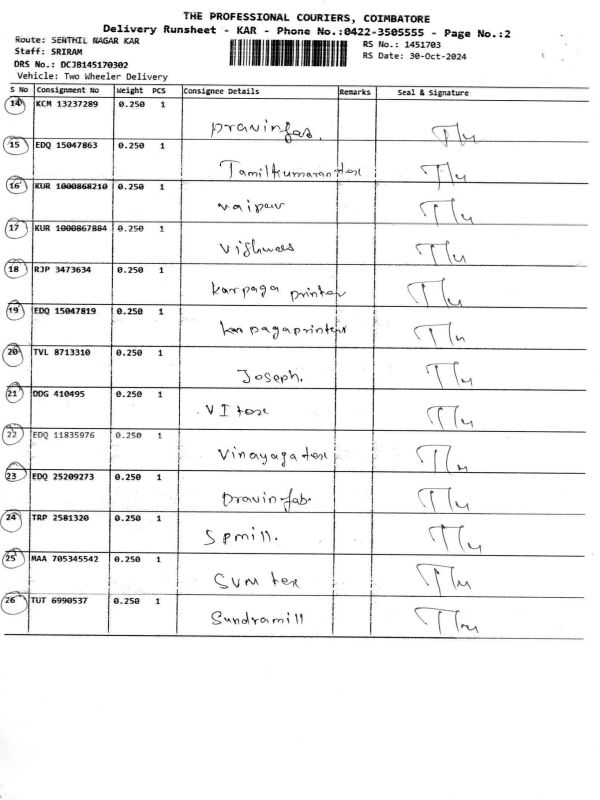 THE PROFESSIONAL COURIERS, COIMBATORE
Delivery Runsheet - KAR - Phone No.:0422-3505555 - Page No.:2
Route: SENTHIL NAGAR KAR
RS No.: 1451703
Staff: SRIRAM
RS Date: 30-Oct-2024
DRS No.: DCJB145170302
Vehicle: Two Wheeler Delivery
S No Consignment No Weight PCS Consignee Details Remarks Seal & Signature
14 KCM 13237289 0.250 1
pravinfas.
15 EDQ 15047863 0.250 1
Tamilkumaran tex
16 KUR 1000868210 0.250 1
17 KUR 1000867884 0.250 1
18 RJP 3473634 0.250 1
karpaga printer
19 EDQ 15047819 0.250 1
karpagaprinters
20 TVL 8713310 0.250 1
Joseph.
21 DDG 410495 0.250 1
VI tex
22 EDQ 11835976 0.250 1
Vinayaga tex
23 EDQ 25209273 0.250 1
pravin fab.
24 TRP 2581320 0.250 1
Spmill.
25 MAA 705345542 0.250 1
SVM tex
26 TUT 6990537 0.250 1
Sundramill